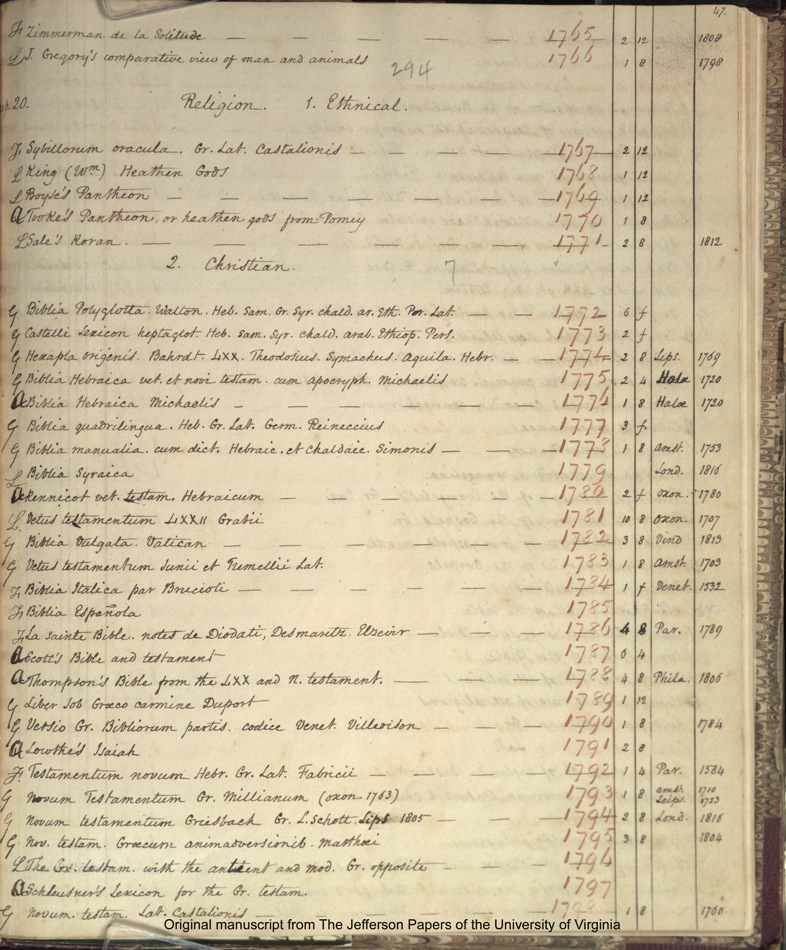 47.
F Zimmerman de la Solitude — 1765 2 12 1808
L J. Gregory's comparative view of man and animals 1766 1 8 1798
294
20. Religion. 1. Ethnical.
F Sybillorum oracula. Gr. Lat. Castalionis — 1767 2 12
L King (Wm) Heathen Gods 1768 1 12
L Boyse's Pantheon — 1769 1 12
A Tooke's Pantheon, or heathen gods from Pomey 1770 1 8
L Sale's Koran. — 1771 2 8 1812
2. Christian. 7
G Biblia Polyglotta. Walton. Heb. Sam. Gr. Syr. chald. ar. Eth. Per. Lat. — 1772 6 f
G Castelli Lexicon heptaglot. Heb. Sam. Syr. chald. arab. Ethiop. Pers. 1773 2 f
G Hexapla Origenis. Bahrdt. LXX. Theodosius. Symachus. Aquila. Hebr. — 1774 2 8 Lips. 1769
G Biblia Hebraica vet. et novi testam. cum apocryph. Michaelis 1775 2 4 Halae 1720
A Biblia Hebraica Michaelis — 1776 1 8 Halae 1720
G Biblia quadrilingua. Heb. Gr. Lat. Germ. Reineccius 1777 3 f
G Biblia manualia. cum dict. Hebraic. et Chaldaic. Simonis — 1778 1 8 Amst. 1753
L Biblia Syraica 1779 Lond. 1816
A Kennicot vet. testam. Hebraicum — 1780 2 f Oxon. 1780
L Vetus testamentum LXXII Grabii 1781 10 8 Oxon. 1707
G Biblia Vulgata. Vatican — 1782 3 8 Vind 1813
G Vetus testamentum Junii et Tremellii Lat. 1783 1 8 Amst. 1703
F Biblia Italica par Brucioli — 1784 1 f Venet. 1532
F Biblia Española 1785
F La sainte Bible. notes de Diodati, Desmaretz. Elzevir — 1786 4 8 Par. 1789
A Scott's Bible and testament 1787 6 4
A Thompson's Bible from the LXX and N. testament. — 1788 4 8 Phila. 1808
G Liber Job Graeco carmine Duport 1789 1 12
G Versio Gr. Bibliorum partis. codice Venet. Villevison — 1790 1 8 1784
A Lowthe's Isaiah 1791 2 8
F Testamentum novum Hebr. Gr. Lat. Fabricii — 1792 1 4 Par. 1584
G Novum Testamentum Gr. Millianum (Oxon 1763) 1793 1 8 Amst. 1710 Leips. 1723
G Novum testamentum Griesback Gr. L. Schott. Lips 1805 — 1794 2 8 Lond. 1818
G Nov. testam. Graecum animadversionib. Matthaei 1795 3 8 1804
L The Gr. testam. with the antient and mod. Gr. opposite — 1796
A Schleusner's Lexicon for the Gr. testam. 1797
G Novum. testam. Lat. Castalionis — 1 8 1760
Original manuscript from The Jefferson Papers of the University of Virginia